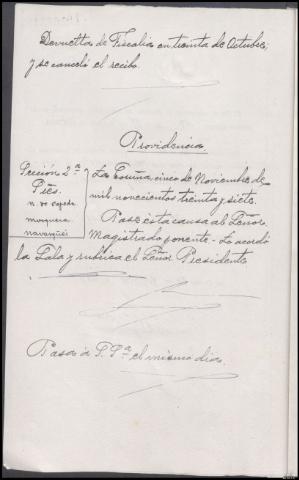 Devuelta de Fiscalia en treinta de Octubre;
y se canceló el recibo.
Providencia
Sección 2ª
Pres.
n. de cepeda
mosquera
navarqúes
La Coruña, cinco de Noviembre de
mil novecientos treinta y siete.
Pase esta causa al Señor
Magistrado ponente - Lo acordó
la Sala y rubrica el Señor Presidente
Pasa á S. Sª el mismo dia.